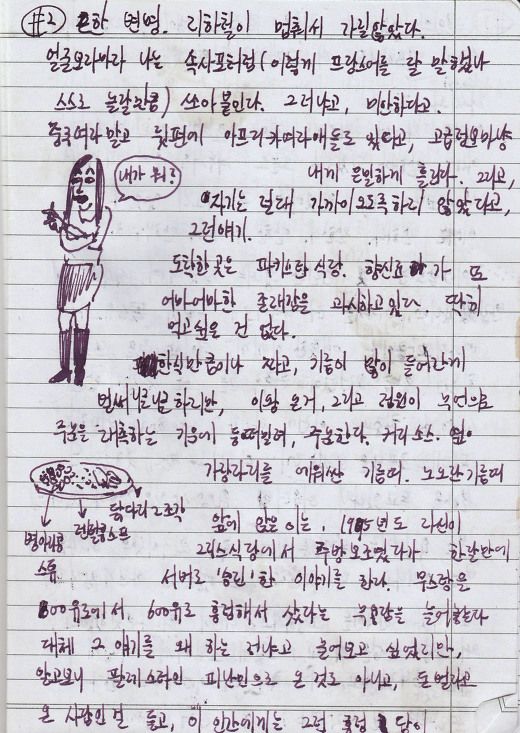 #2 흔한 변명. 리하철이 멈춰서 가질 않았다.
얼굴모라마라 나는 속사포처럼 (이렇게 프랑스어를 잘 말했나
스스로 놀랄만큼) 쏘아붙인다. 그러냐고, 미안하다고.
중국여자 말고 뒷편에 아프리카여자애들도 있다고,
내게 은밀하게 흘린다. 그리고,
내가 뭐?
자기는 절대 가까이 오도록 하지 않았다고,
그런 얘기.
도착한 곳은 파키스탄 식당. 향신료가 또
어마어마한 존재감을 과시하고 있다. 딱히
먹고 싶은 건 없다.
한식만큼이나 짜고, 기름이 많이 들어간게
벌써 하지만, 이왕 온거, 그리고 점원이 무언으로
주문을 재촉하는 기운에 등떠밀려, 주문한다. 커리 소스.
가장자리를 에워싼 기름띠. 노오란 기름띠
닭다리 2조각
렌틸콩스프
병아리콩
스튜
앞에 앉은 이는, 1985년도 당신이
그리스식당에서 주방보조였다가 한달만에
서버로 '승진'한 이야기를 한다. 무스탕을
800유로에서, 600유로 흥정해서 샀다는 무용담을 늘어놓는다
대체 그 얘기를 왜 하는 거냐고 물어보고 싶었지만,
알고보니 팔레스타인 피난민으로 온 것도 아니고, 돈 벌려고
온 사람인 걸 듣고, 이 인간에게는 그런 류럼 답이